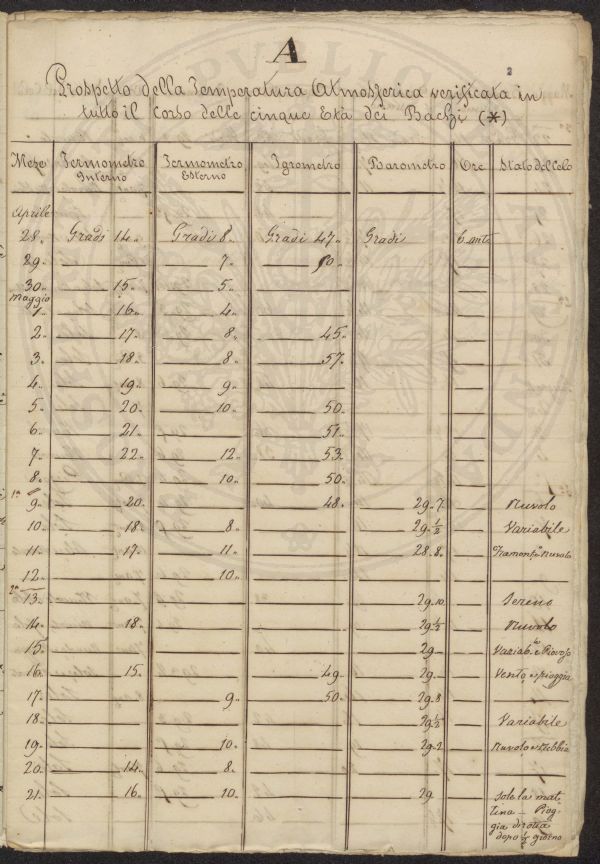 A
2
Prospetto della Temperatura Atmosferica verificata in
tutto il Corso delle cinque Età dei Bachi (*)
Mese Termometro Interno Termometro Esterno Igrometro Barometro Ore Stato del Celo
Aprile
28. Gradi 14. Gradi 8. Gradi 47. Gradi 6. ant.
29. — 7. — 50. —
30. — 15. — 5. — —
Maggio
1. — 16. — 4. — —
2. — 17. — 8. — 45. —
3. — 18. — 8. — 57. —
4. — 19. — 9. — —
5. — 20. — 10. — 50. —
6. — 21. — — 51. —
7. — 22. — 12. — 53. —
8. — — 10. — 50. —
1a
9. — 20. — — 48. — 29. 7. — Nuvolo
10. — 18. — 8. — — 29. 1/2 — Variabile
11. — 17. — 11. — — 28. 8. — Nuvolo
12. — — 10. — — — —
2a
13. — — — — 29. 10. — Sereno
14. — 18. — — — 29. 1/2 — Nuvolo
15. — — — — 29. — Variab.le e Piovoso
16. — 15. — — 49. — 29. — Vento e pioggia
17. — — 9. — 50. — 29. 8 — —
18. — — — — 29. 1/2 — Variabile
19. — — 10. — — 29. 2 — Nuvolo e Nebbia
20. — 14. — 8. — — — —
21. — 16. — 10. — — 29 — Sole la mat-
tina – Piog-
gia dirotta
dopo 1/2 giorno